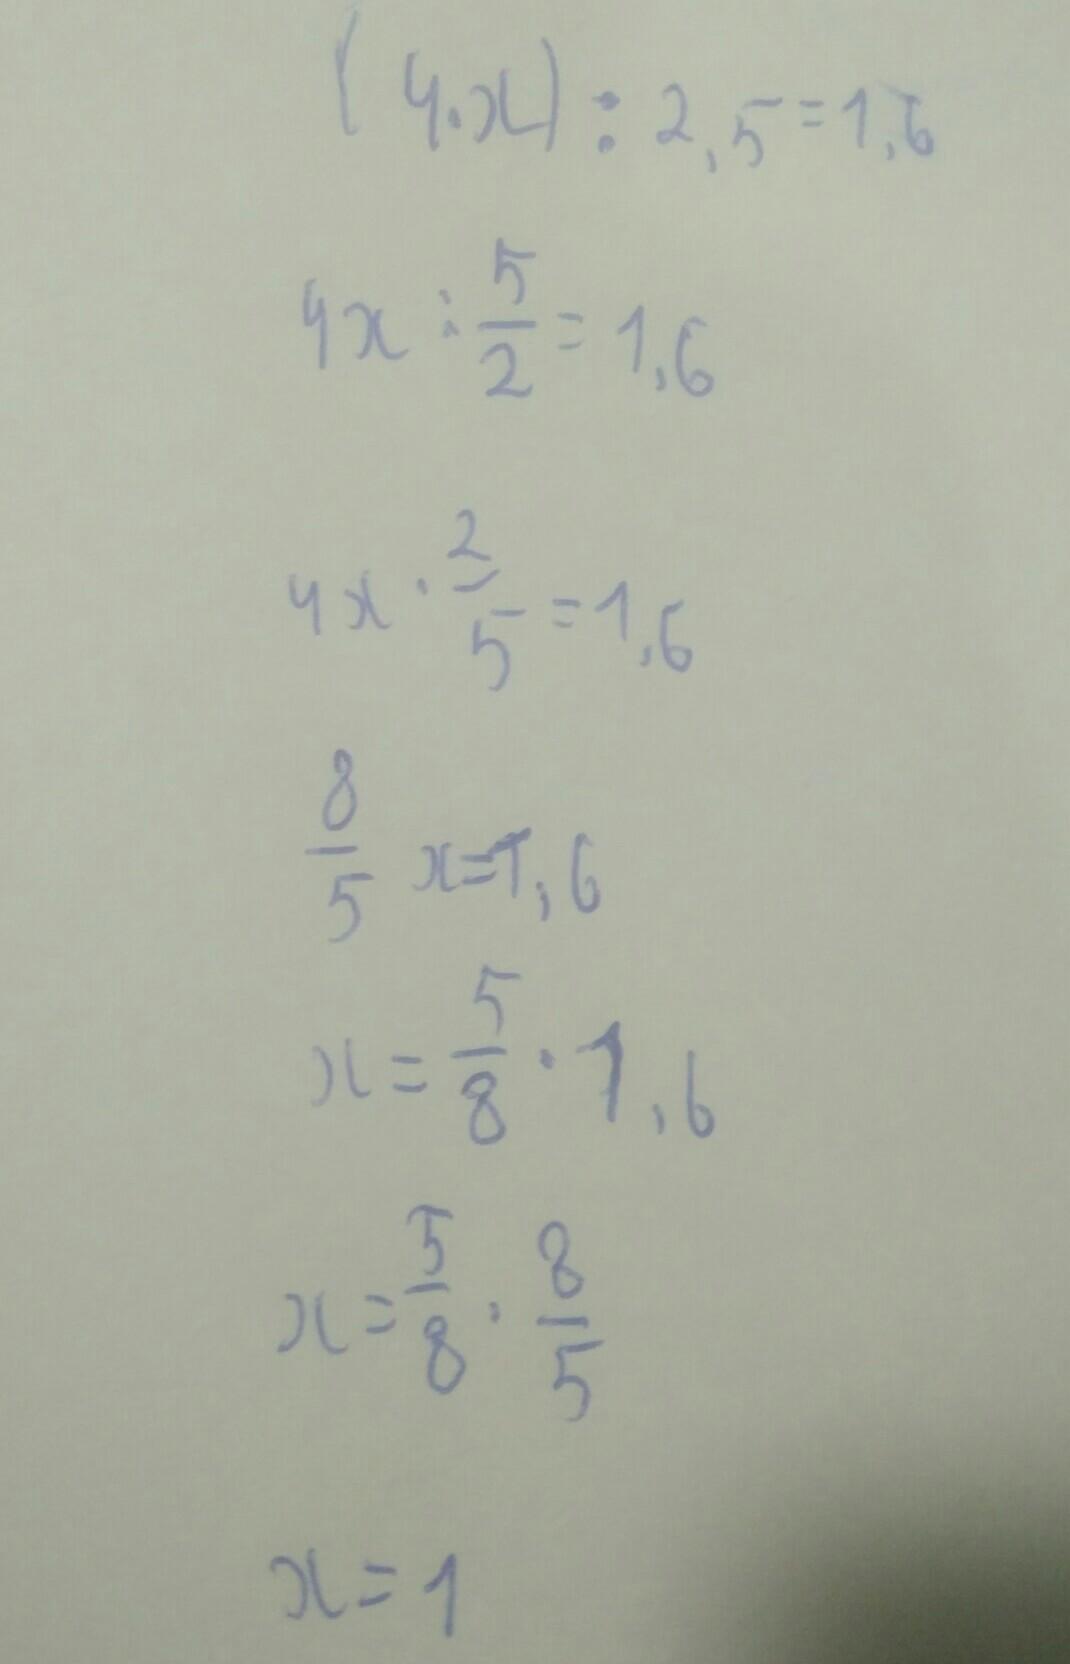 (4.x) : 2,5 = 1,6
4x : 5/2 = 1,6
4x · 2/5 = 1,6
8/5 x = 1,6
x = 5/8 · 1,6
x = 5/8 · 8/5
x = 1